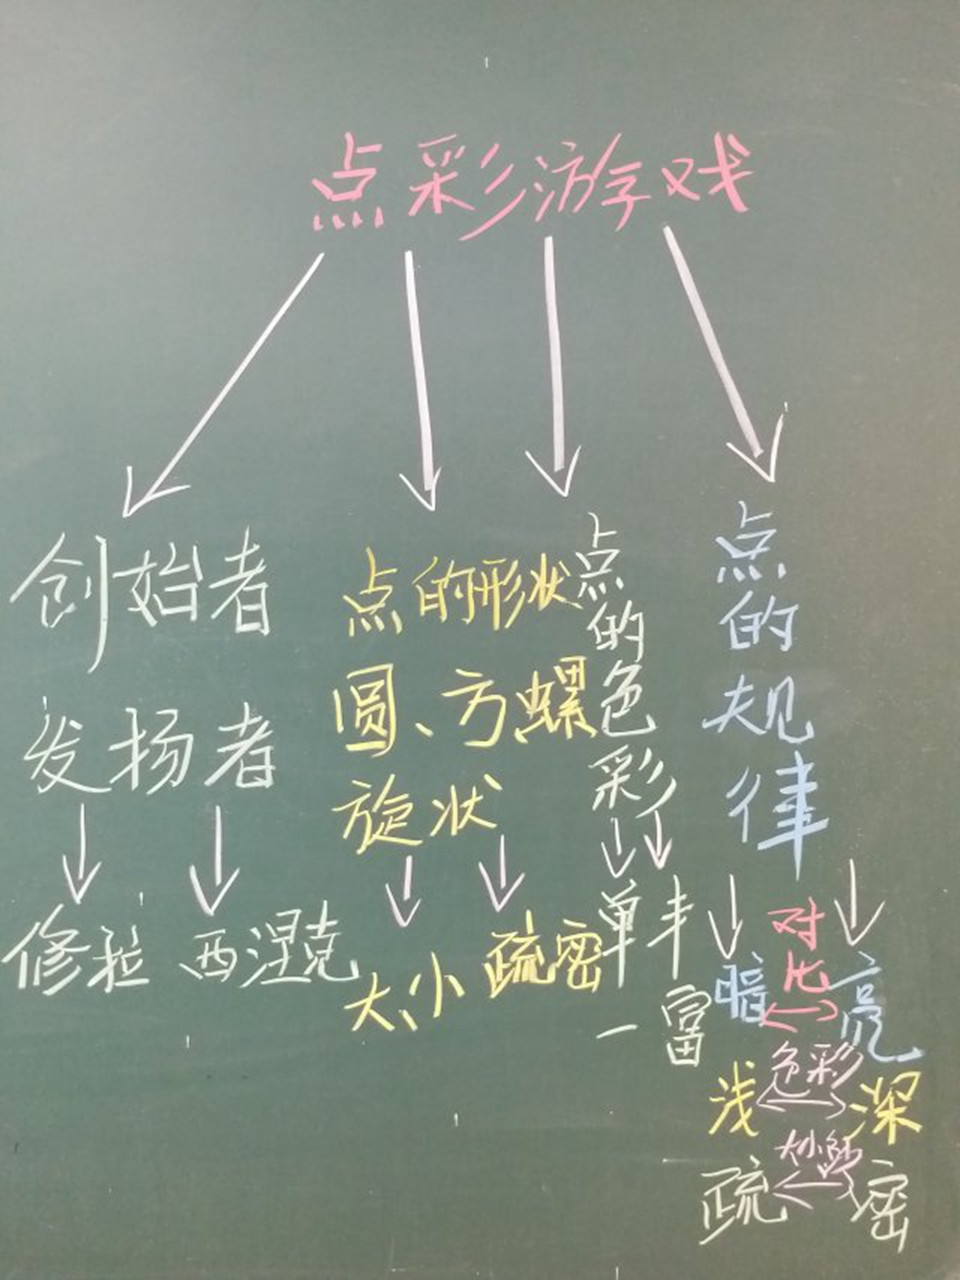 点彩游戏
创始者
发扬者
修拉
西涅克
点的形状
圆、方螺
旋状
大小
疏密
点的色彩
单一
丰富
点的规律
对比
暗
亮
色彩
浅
深
疏
密